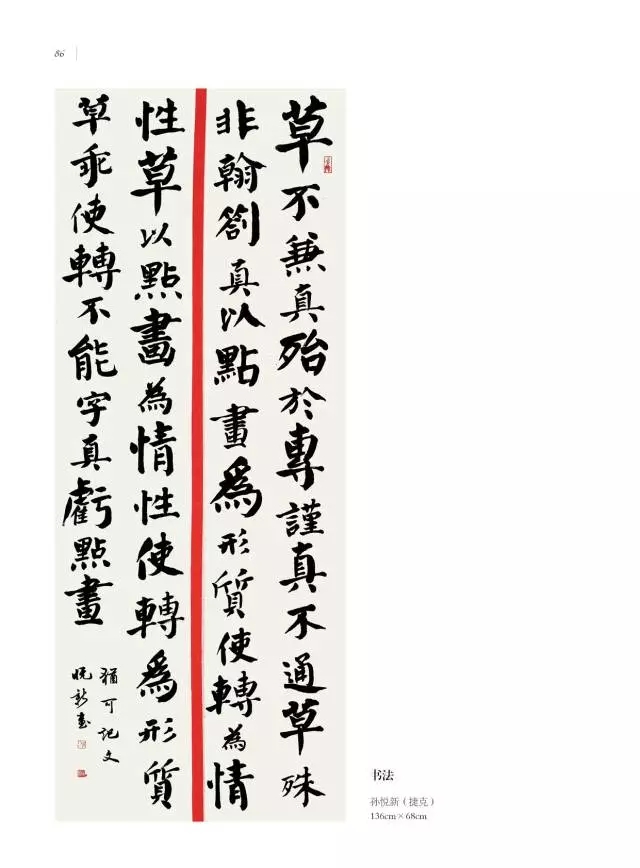 86
草不兼真殆於專謹真不通草殊
非翰劄真以點畫為形質使轉為情
性草以點畫為情性使轉為形質
草乖使轉不能字真虧點畫
猶可記文
悦新書
书法
孙悦新（捷克）
136cm×68cm